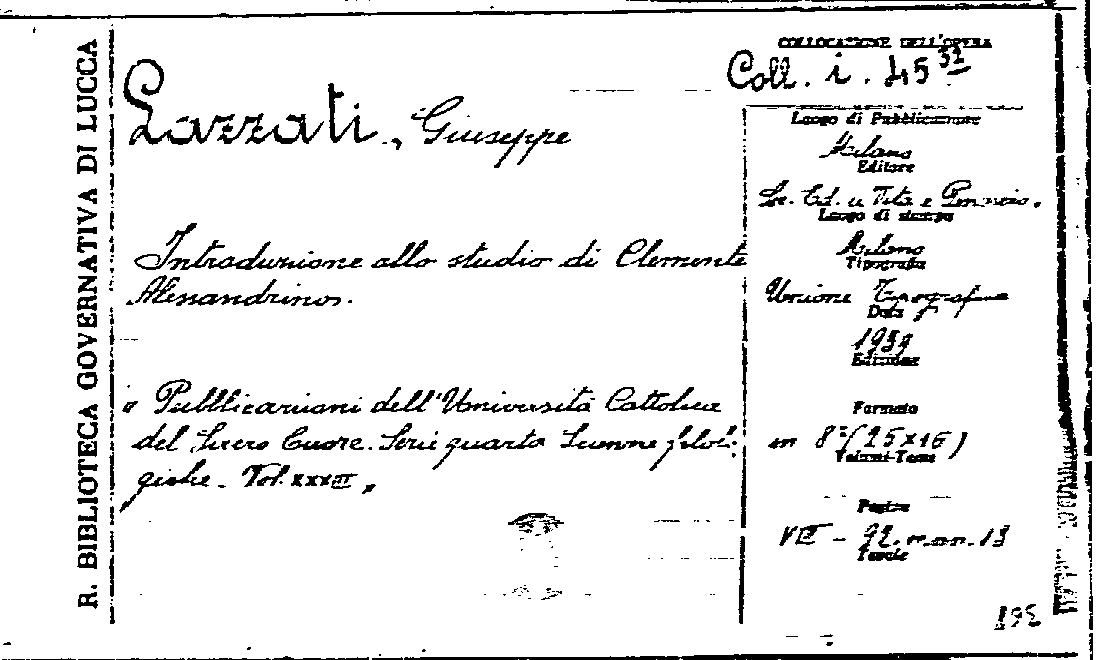 R. BIBLIOTECA GOVERNATIVA DI LUCCA
Lazzati, Giuseppe
Introduzione allo studio di Clemente
Alessandrino.
" Pubblicazioni dell'Università Cattolica
del Sacro Cuore. Serie quarta Scienze filolo-
giche. Vol. XXXII "
COLLOCAZIONE DELL'OPERA
Coll. i. 45 32
Luogo di Pubblicazione
Milano
Editore
Soc. Ed. Vita e Pensiero.
Luogo di stampa
Milano
Tipografia
Unione Tipografica
Data
1939
Edizione
Formato
in 8° (25x16)
Volumi-Tomi
Pagine
VIII - 92. 13
Tavole